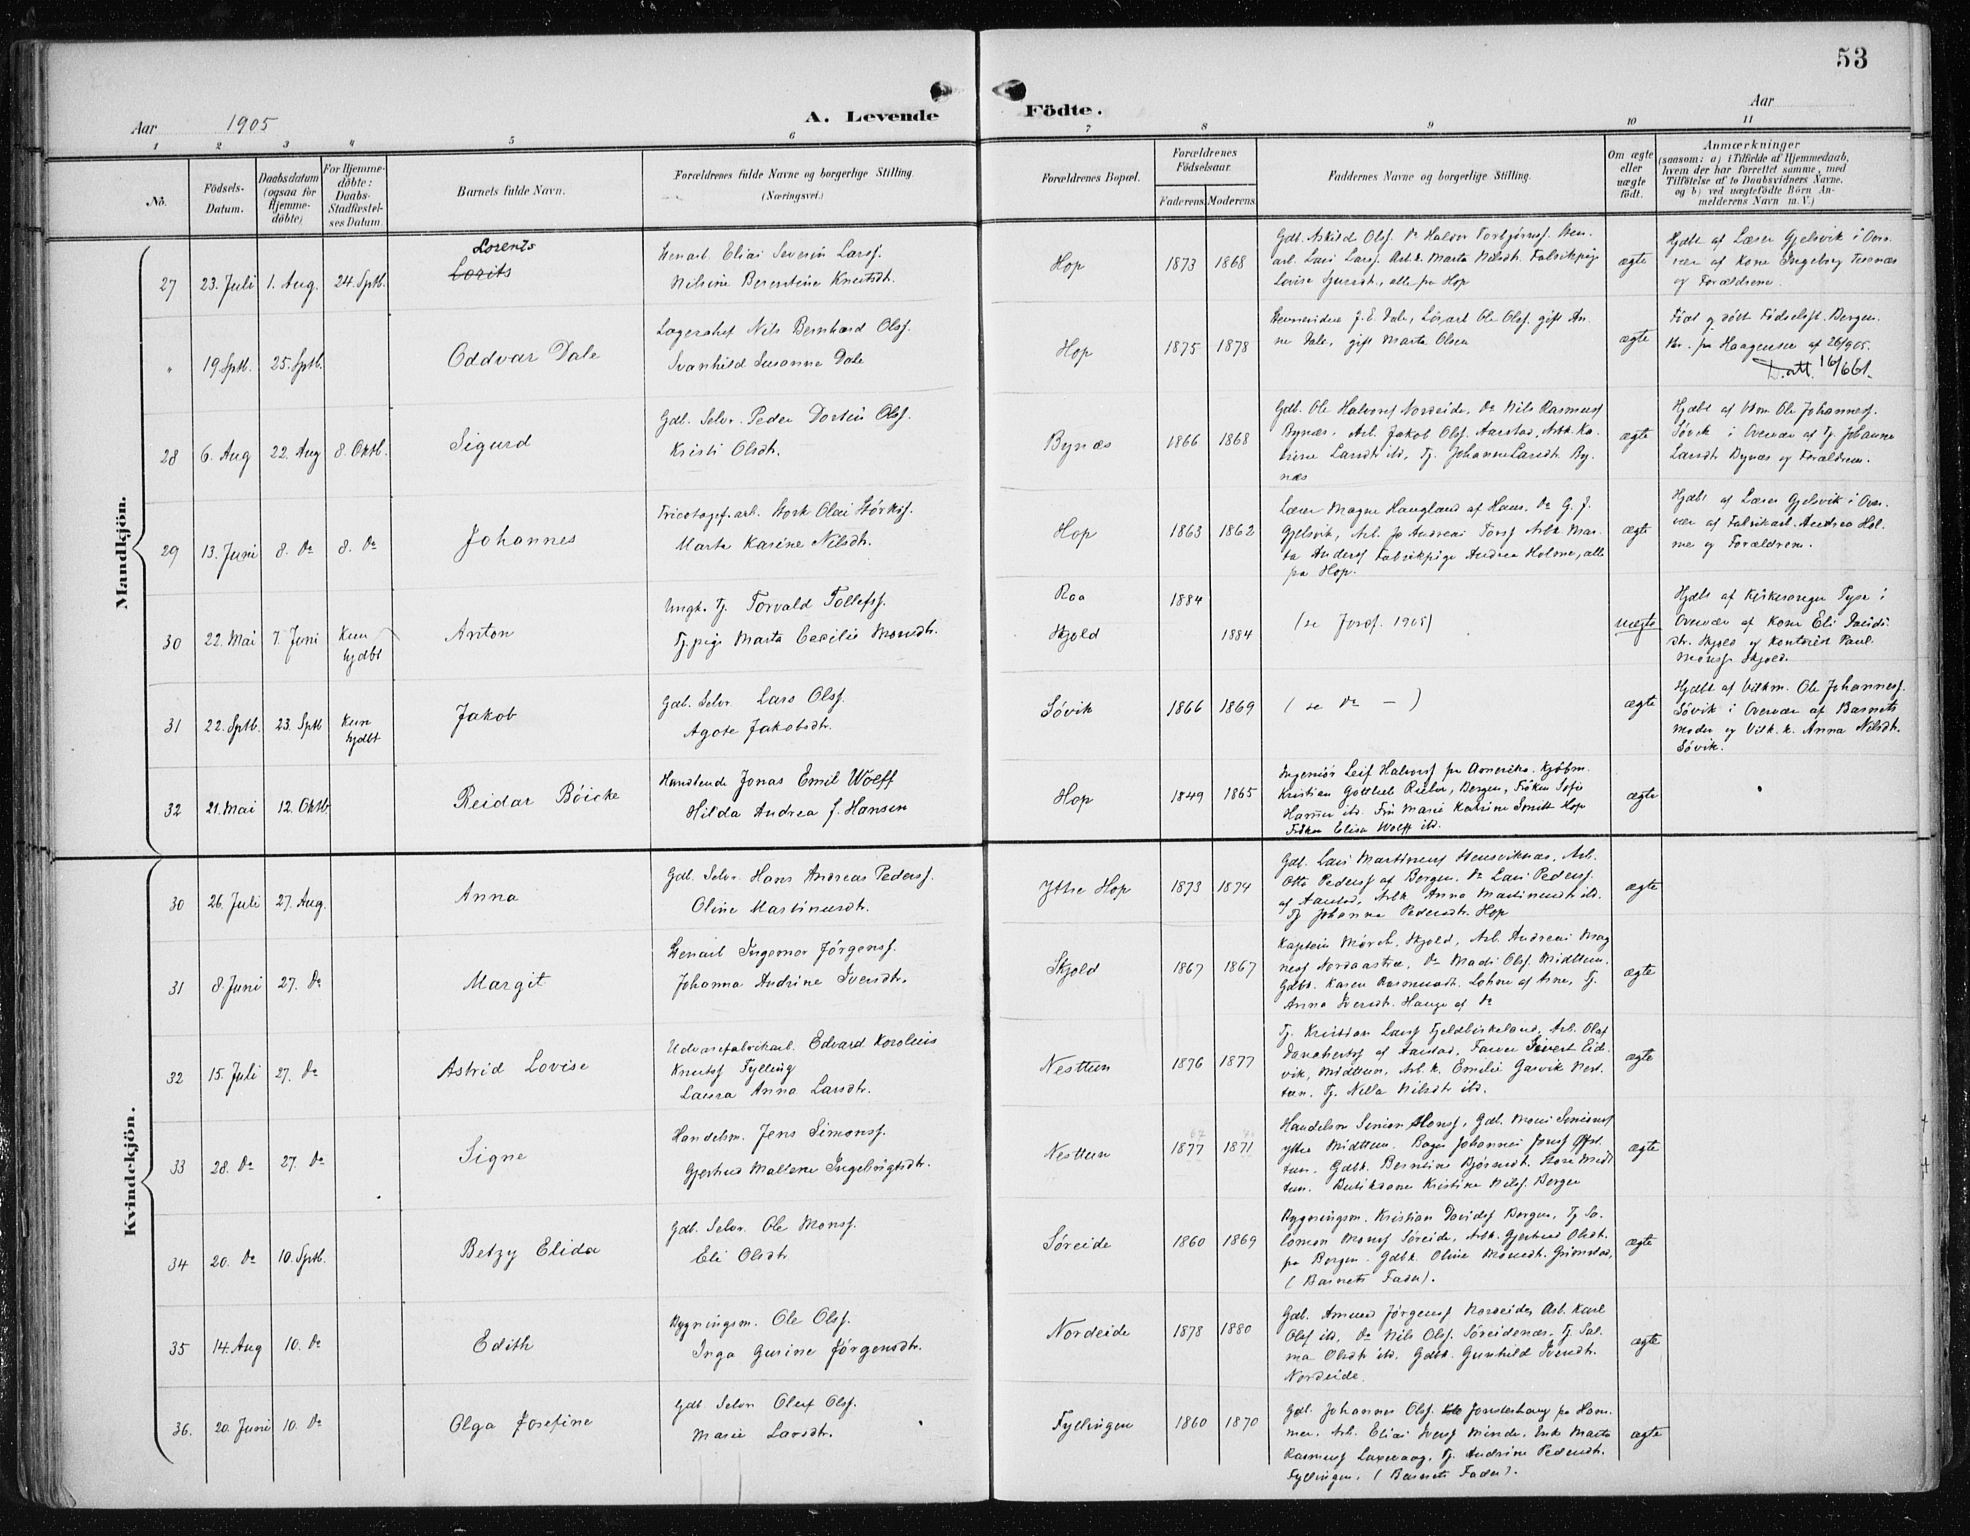 53
A. Levende Födte.
Aar 1905
Aar
1 2 3 4 5 6 7 8 9 10 11
No.
Födsels-Datum.
Daabsdatum (ogsaa for Hjemme-döbte)
For Hjemme-döbte: Daabs-Stadfæstel-ses Datum
Barnets fulde Navn.
Forældrenes fulde Navne og borgerlige Stilling. (Næringsvei.)
Forældrenes Bopæl.
Forældrenes Födselsaar.
Faderens Moderens
Faddernes Navne og borgerlige Stilling.
Om ægte eller uægte födt.
Anmærkninger
(saasom: a) i Tilfælde af Hjemmedaab,
hvem der har forrettet samme, med
Tilföielse af to Daabsvidners Navne.
og b) ved uægtefödte Börn An-
melderens Navn m. V.)
Mandkjön.
27 23. Juli 1. Aug. 24. Sptb. Lorents
Lorits
Elias Severin Larsf.
Nilsine Berentine Knutsdtr.
Hop 1873 1868
Gdb. Askild Olsf. Do Halvor Torbjørnsf.
arb. Lars Larsf. Arb.k. Marta Nilsdt. Fabrikpige
Lovise, alle fra Hop
ægte
Hjdbt af Lærer Gjelsvik i Over-
vær af Kone Ingeborg
og Forældrene.
" 19 Sptb. 25. Sptb. Oddvar Dale
Lagerchef Nils Bernhard Olsf.
Svanhild Susanne Dale
Hop 1875 1878
J. E. Dale, Ole Olsf. gift An-
ne Dale, gift Marta Olsen
ægte
Født og døbt Fødselsst. Bergen.
fra Haagensen af 26/9 05.
D.att. 16/6 61.
28 6. Aug 22. Aug 8. Oktb. Sigurd
Gdb. Selv. Peder Dortein Olsf.
Kristi Olsdtr.
Bynæs 1866 1868
Gdb. Ole Halvorsf Nordeide, Do Nils Rasmusf
Bynæs, Arb. Jakob Olsf. Aarstad, Arb.k. Ka-
trine Larsdtr ibd, Tj. Johanne Larsdtr. By-
næs
ægte
Hjdbt af Vkm Ole Johannesf.
Søvik i Overvær af Tj. Johanne
Larsdtr Bynæs og Forældrene.
29 13. Juni 8. Do 8. Do Johannes
Tricotagef.arb. Stork Olai Størksf.
Marta Karine Nilsdtr.
Hop 1863 1862
Lærer Magne Haugland af Haus, Do G. J.
Gjelsvik, Arb. Jo Andreas Torsf Arb.k. Mar-
ta Andersf Fabrikpige Andrea Holme, alle
fra Hop.
ægte
Hjdbt af Lærer Gjelsvik i Over-
vær af Fabrikarb. Andrea Hol-
me og Forældrene.
30 22. Mai 7. Juni Kun hjdbt Anton
Ungk. Tj. Torvald Tollefsf.
Tj.pige Marta Cecilie Monsdtr.
Raa 1884
Skjold 1884
uægte
Hjdbt af Kirkesanger Tyse i
Overvær af Kone Eli Davids-
dtr. Skjold og Kontorist Paul
Monsf Skjold.
31 22. Sptb. 23. Sptb Kun hjdbt Jakob
Gdb. Selv. Lars Olsf.
Agote Jakobsdtr.
Søvik 1866 1869 ( se Do — )
ægte
Hjdbt af Vitkm. Ole Johannesf.
Søvik i Overvær af Barnets
Moder og Vitk.k. Anna Nilsdtr.
Søvik.
32 21. Mai 12. Oktb. Reidar Bøicke
Handlende Jonas Emil Wolff
Hilda Andrea f. Hansen
Hop 1849 1865
Ingeniør Leif Halvorsf fra Amerika. Kjøbm.
Kristian Gottlieb Rieber, Bergen, Frøken Sofie
Hammer ibd. Fru Marie Katrine Smitt Hop
Frøken Elisa Wolff ibd.
ægte
Kvindekjön.
30 26. Juli 27. Aug. Anna
Gdb. Selv. Hans Andreas Pedersf.
Oline Martinusdtr.
Ytre Hop 1873 1874
Gdb. Lars Martinusf Stensviknæs, Arb.
Otto Pedersf af Bergen. Do Lars Pedersf.
af Aarstad, Arb.k. Anna Martinusdt. ibd.
Tj Johanna Pedersdtr. Hop
ægte
31 8. Juni 27. Do Margit
Stenarb Ingemor Jørgensf.
Johanna Andrine Iversdtr.
Skjold 1867 1867
Kaptein Mørch, Skjold, Arb. Andreas Mag-
nesf Nordaastræ, Do Mads Olsf Midttun,
Gdbk. Karen Rasmusdt. Lohne af Arne, Tj.
Anna Iversdtr. Hauge af Do
ægte
32 15. Juli 27. Do Astrid Lovise
Uldvarefabrikarb. Edvard Korolius
Knutsf Fylling
Laura Anna Larsdtr.
Nesttun 1876 1877
Tj. Kristian Larsf Fjeldbirkeland, Arb. Olaf
af Aarstad, Farver Sivert Eid-
vik, Midttun, Arb.k. Emilie Garvik Nest-
tun. Tj. Nella Nilsdtr ibd.
ægte
33 28. Do 27. Do Signe
Handelsm. Jens Simonsf.
Gjertrud Malene Ingebrigtsdtr.
Nesttun 1877 1871
Handelsm Simon Monsf, Gdb. Mons Simonsf
ytre Midttun. Bager Johannes Jonsf
tun. Gdbk. Berntine Bjørnsdt. Store Midt
tun. Kristine Nilsf. Bergen
ægte
34 20. Do 10. Sptb. Betzy Elida
Gdb. Selv. Ole Monsf.
Eli Olsdtr
Søreide 1860 1869
Bygningsm. Kristian Davidsf Bergen, Tj Sa-
lomon Monsf Søreide, Arb.k. Gjertrud Olsdt.
fra Bergen. Gdbk. Oline Monsdt. Grimstad,
( Barnets Fader).
ægte
35 14. Aug 10. Do Edith
Bygningsm. Ole Olsf.
Inga Gurine Jørgensdtr.
Nordeide 1878 1880
Gdb. Amund Jørgensf Nordeide, Arb. Karl
Olsf ibd, Do Nils Olsf. Søreidenæs, Tj Sal-
ma Olsdt ibd, Gdbk. Gunhild Iversdtr.
Nordeide.
ægte
36. 20. Juni 10. Do Olga Josefine
Gdb Selv Oluf Olsf.
Marie Larsdtr.
Fyllingen 1860 1870
Gdb. Johannes Olsf. fra Ham-
mer, Arb. Elias Iversf Minde, Enke Marta
Rasmusf Laxevaag, Tj. Andrine Pedersdt.
Fyllingen, ( Barnets Fader).
ægte